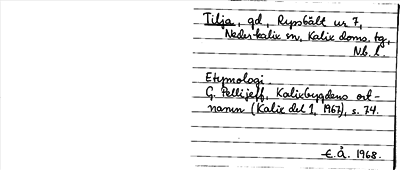 Tilja, gd, Rypsbält nr 7,
Nederkalix sn, Kalix doms. tg,
Nb. l.
Etymologi.
G. Pellijeff, Kalixbygdens ort-
namn (Kalix del 1, 1967), s. 74.
E. Å. 1968.